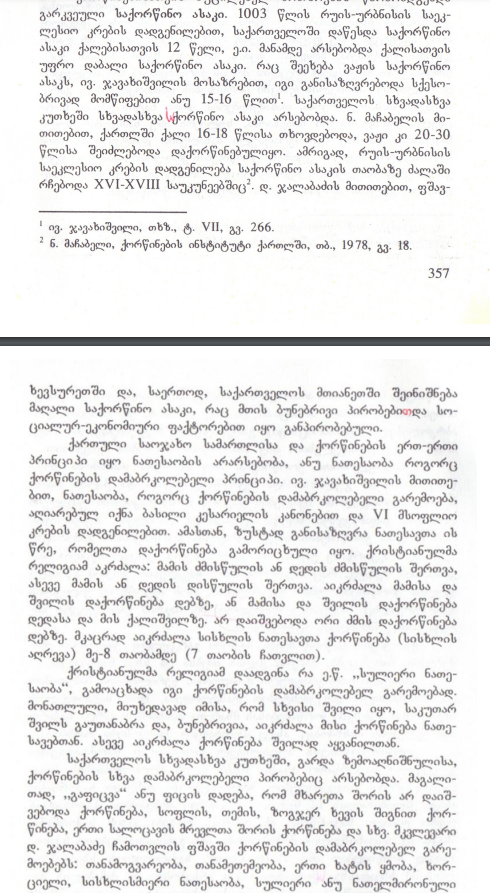 გარკვეული საქორწინო ასაკი. 1003 წლის რუის-ურბნისის საეკ-
ლესიო კრების დადგენილებით, საქართველოში დაწესდა საქორწინო
ასაკი ქალებისათვის 12 წელი, ე.ი. მანამდე არსებობდა ქალისათვის
უფრო დაბალი საქორწინო ასაკი. რაც შეეხება ვაჟის საქორწინო
ასაკს, ივ. ჯავახიშვილის მოსაზრებით, იგი განისაზღვრებოდა სქესო-
ბრივად მომწიფებით ანუ 15-16 წლით¹. საქართველოს სხვადასხვა
კუთხეში სხვადასხვა საქორწინო ასაკი არსებობდა. ნ. მაჩაბელის მი-
თითებით, ქართლში ქალი 16-18 წლისა თხოვდებოდა, ვაჟი კი 20-30
წლისა შეიძლებოდა დაქორწინებულიყო. ამრიგად, რუის-ურბნისის
საეკლესიო კრების დადგენილება საქორწინო ასაკის თაობაზე ძალაში
რჩებოდა XVI-XVIII საუკუნეებშიც². დ. ჯალაბაძის მითითებით, ფშავ-
¹ ივ. ჯავახიშვილი, თხზ., ტ. VII, გვ. 266.
² ნ. მაჩაბელი, ქორწინების ინსტიტუტი ქართლში, თბ., 1978, გვ. 18.
357
ხევსურეთში და, საერთოდ, საქართველოს მთიანეთში შეინიშნება
მაღალი საქორწინო ასაკი, რაც მთის ბუნებრივი პირობებითდა სო-
ციალურ-ეკონომიური ფაქტორებით იყო განპირობებული.
ქართული საოჯახო სამართლისა და ქორწინების ერთ-ერთი
პრინციპი იყო ნათესაობის არარსებობა, ანუ ნათესაობა როგორც
ქორწინების დამაბრკოლებელი პრინციპი. ივ. ჯავახიშვილის მითითე-
ბით, ნათესაობა, როგორც ქორწინების დამაბრკოლებელი გარემოება,
აღიარებულ იქნა ბასილი კესარიელის კანონებით და VI მსოფლიო
კრების დადგენილებით. ამასთან, ზუსტად განისაზღვრა ნათესავთა ის
წრე, რომელთა დაქორწინება გამორიცხული იყო. ქრისტიანულმა
რელიგიამ აკრძალა: მამის ძმისწულის ან დედის ძმისწულის შერთვა,
ასევე მამის ან დედის დისწულის შერთვა. აიკრძალა მამისა და
შვილის დაქორწინება დებზე, ან მამისა და შვილის დაქორწინება
დედასა და მის ქალიშვილზე. არ დაიშვებოდა ორი ძმის დაქორწინება
დებზე. მკაცრად აიკრძალა სისხლის ნათესავთა ქორწინება (სისხლის
აღრევა) მე-8 თაობამდე (7 თაობის ჩათვლით).
ქრისტიანულმა რელიგიამ დაადგინა რა ე.წ. „სულიერი ნათე-
საობა“, გამოაცხადა იგი ქორწინების დამაბრკოლებელ გარემოებად.
მონათლული, მიუხედავად იმისა, რომ სხვისი შვილი იყო, საკუთარ
შვილს გაუთანაბრა და, ბუნებრივია, აიკრძალა მისი ქორწინება ნათე-
სავებთან. ასევე აიკრძალა ქორწინება შვილად აყვანილთან.
საქართველოს სხვადასხვა კუთხეში, გარდა ზემოაღნიშნულისა,
ქორწინების სხვა დამაბრკოლებელი პირობებიც არსებობდა. მაგალი-
თად, „გაფიცვა“ ანუ ფიცის დადება, რომ მხარეთა შორის არ დაიშ-
ვებოდა ქორწინება, სოფლის, თემის, ზოგჯერ ხევის შიგნით ქორ-
წინება, ერთი სალოცავის მრევლთა შორის ქორწინება და სხვ. მკვლევარი
დ. ჯალაბაძე ჩამოთვლის ფშავში ქორწინების დამაბრკოლებელ გარე-
მოებებს: თანამოგვარეობა, თანამეთემეობა, ერთი ხატის ყმობა, ხორ-
ციელი, სისხლისმიერი ნათესაობა, სულიერი ანუ ნათელმირონული